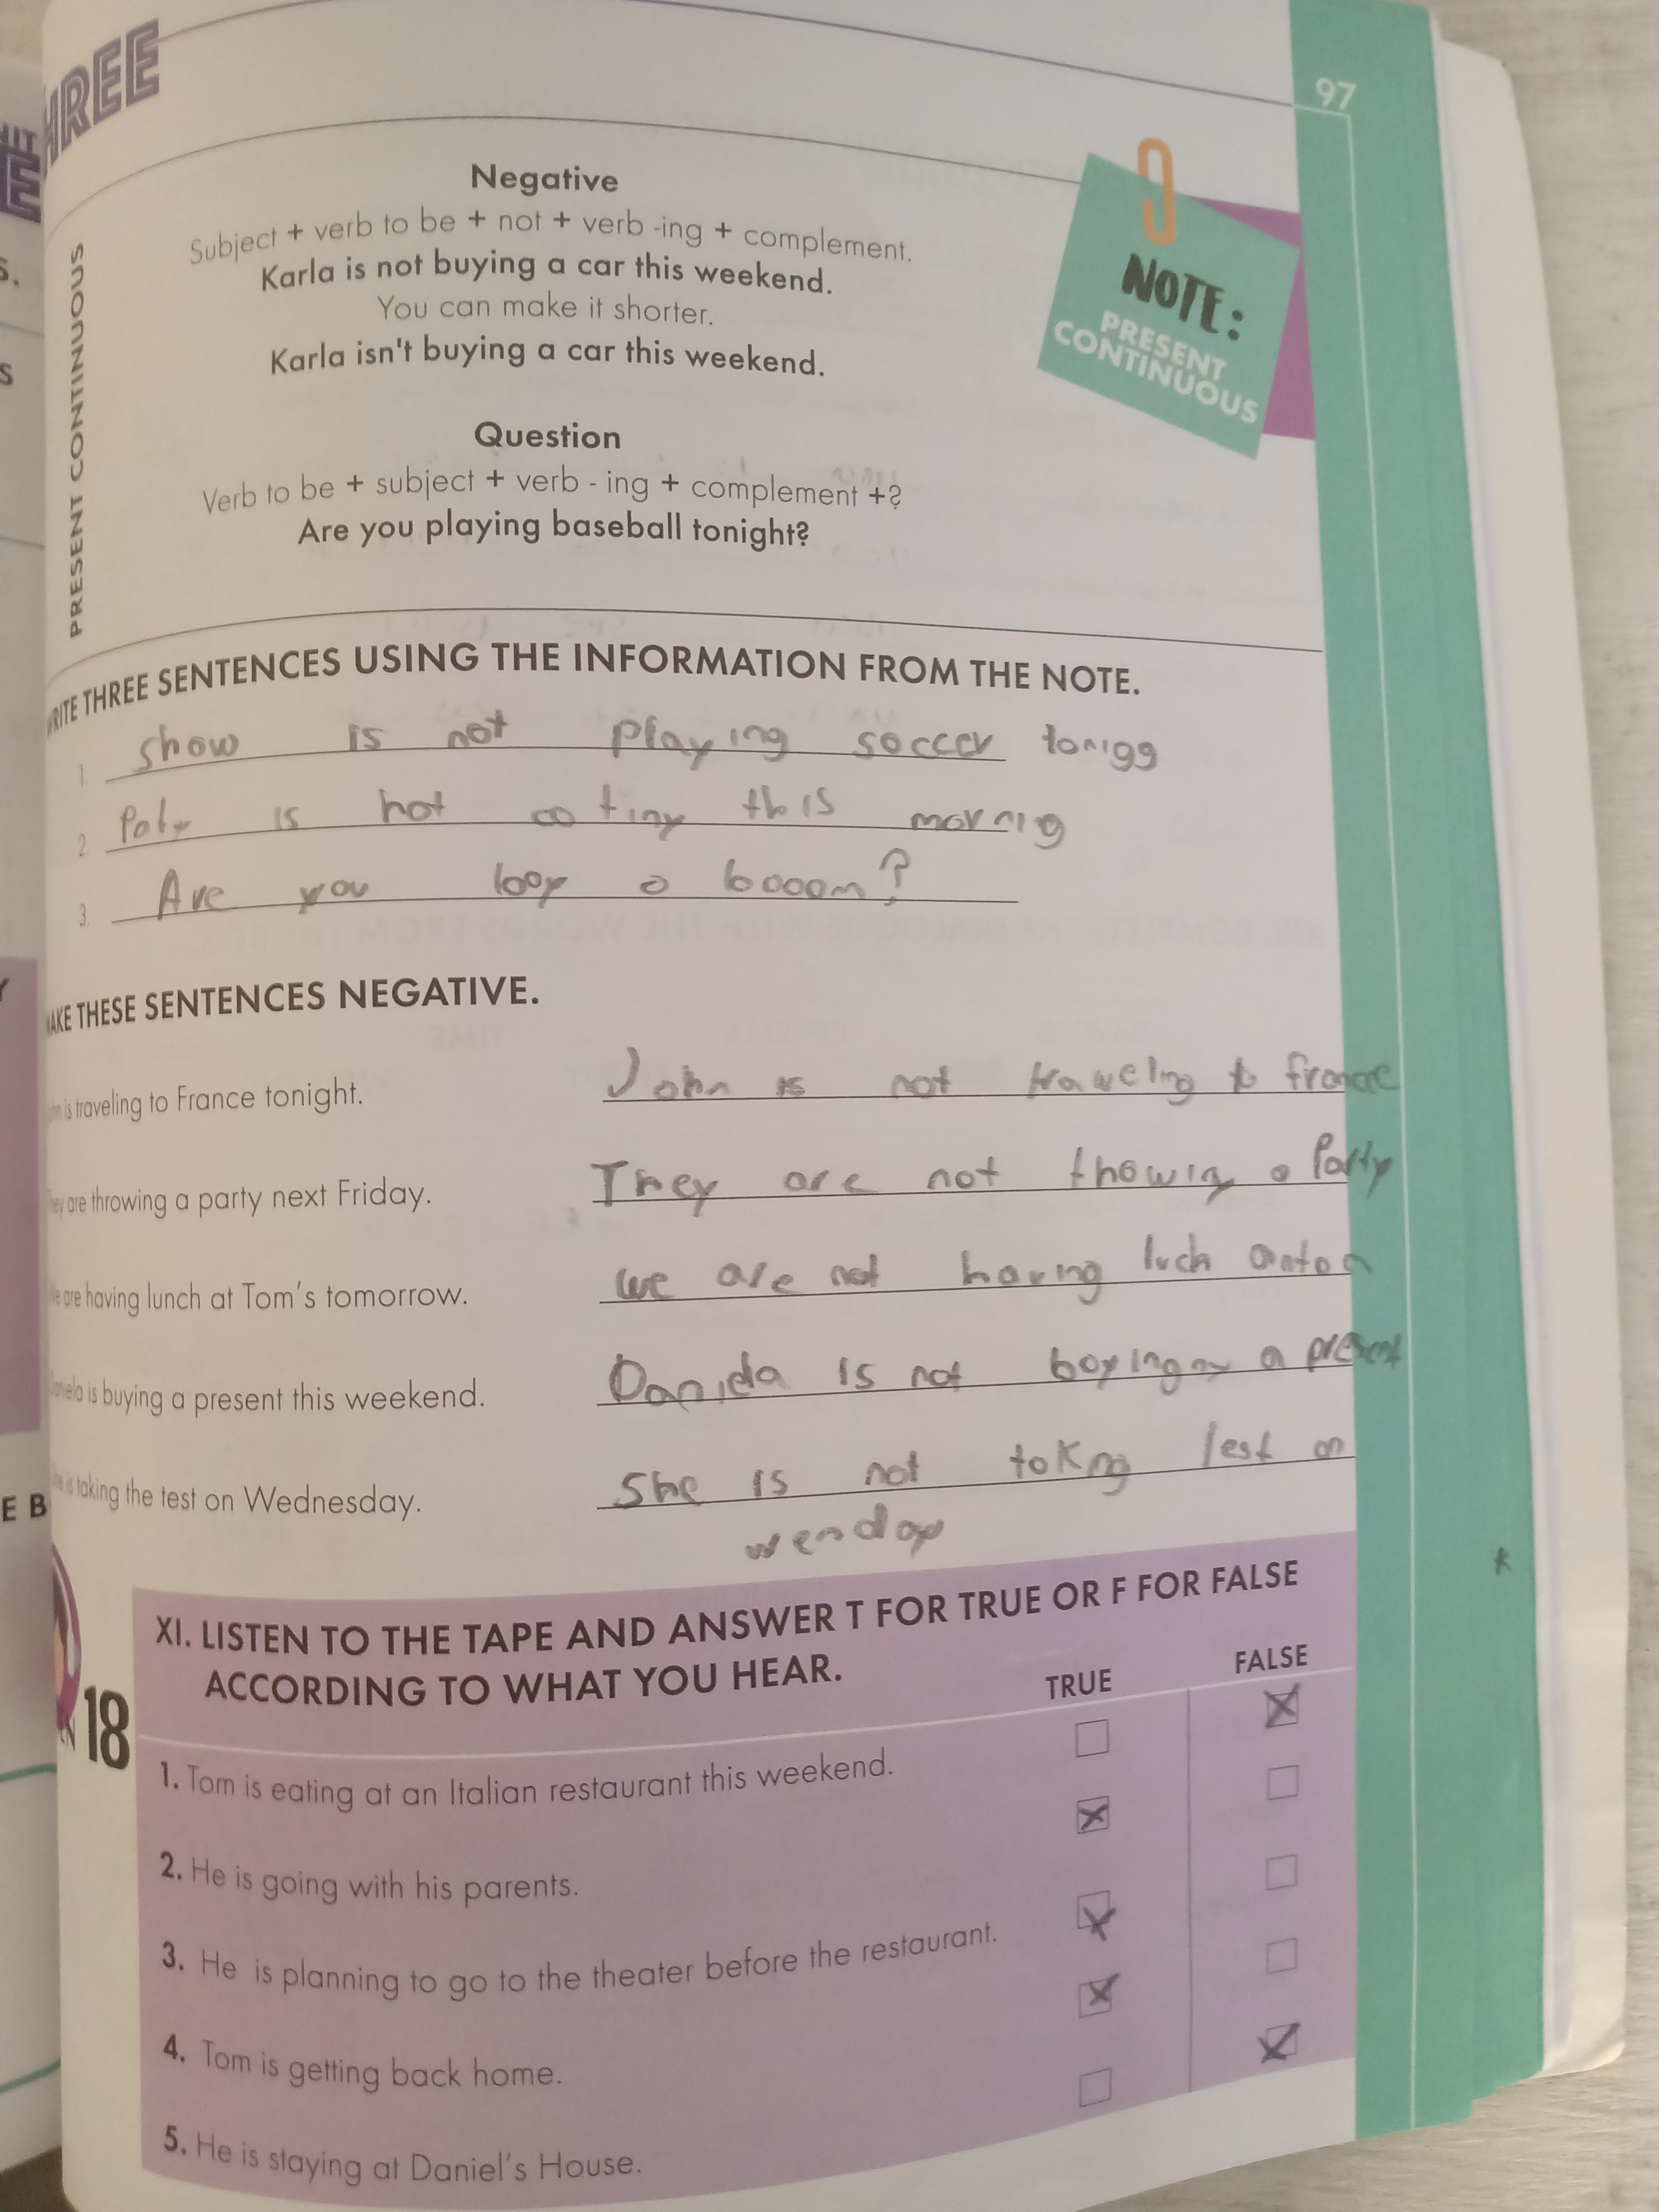 HREE
97
Negative
Subject + verb to be + not + verb -ing + complement.
Karla is not buying a car this weekend.
You can make it shorter.
Karla isn't buying a car this weekend.
NOTE:
PRESENT
CONTINUOUS
PRESENT CONTINUOUS
Question
Verb to be + subject + verb - ing + complement +?
Are you playing baseball tonight?
RITE THREE SENTENCES USING THE INFORMATION FROM THE NOTE.
1. show is not playing soccer tonigg
2. Paty is not this mornig
3. Are you a booom?
AKE THESE SENTENCES NEGATIVE.
is traveling to France tonight. John is not traveling to france
hey are throwing a party next Friday. They are not a Party
e are having lunch at Tom's tomorrow. we are not having luch
aniela is buying a present this weekend. is not a present
he is taking the test on Wednesday. She is not takng test on
wenday
E B
XI. LISTEN TO THE TAPE AND ANSWER T FOR TRUE OR F FOR FALSE
ACCORDING TO WHAT YOU HEAR.
TRUE FALSE
18
1. Tom is eating at an Italian restaurant this weekend.
2. He is going with his parents.
3. He is planning to go to the theater before the restaurant.
4. Tom is getting back home.
5. He is staying at Daniel's House.